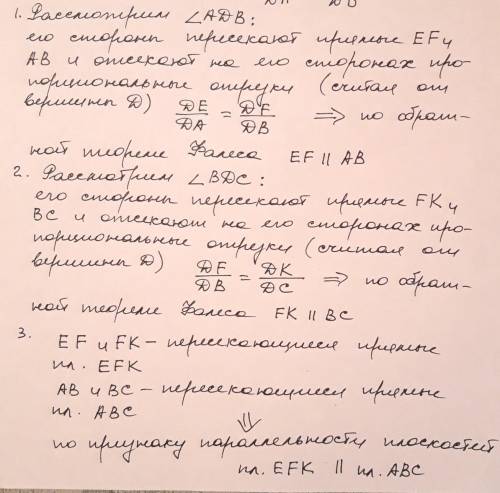 1. Рассмотрим ∠ADB:
его стороны пересекают прямые EF и
AB и отсекают на его сторонах про-
порциональные отрезки (считая от
вершины D) DE/DA = DF/DB ⟹ по обрат-
ной теореме Фалеса EF || AB
2. Рассмотрим ∠BDC:
его стороны пересекают прямые FK и
BC и отсекают на его сторонах про-
порциональные отрезки (считая от
вершины D) DF/DB = DK/DC ⟹ по обрат-
ной теореме Фалеса FK || BC
3.
EF и FK – пересекающиеся прямые
пл. EFK
AB и BC – пересекающиеся прямые
пл. ABC
⇓
по признаку параллельности плоскостей
пл. EFK || пл. ABC